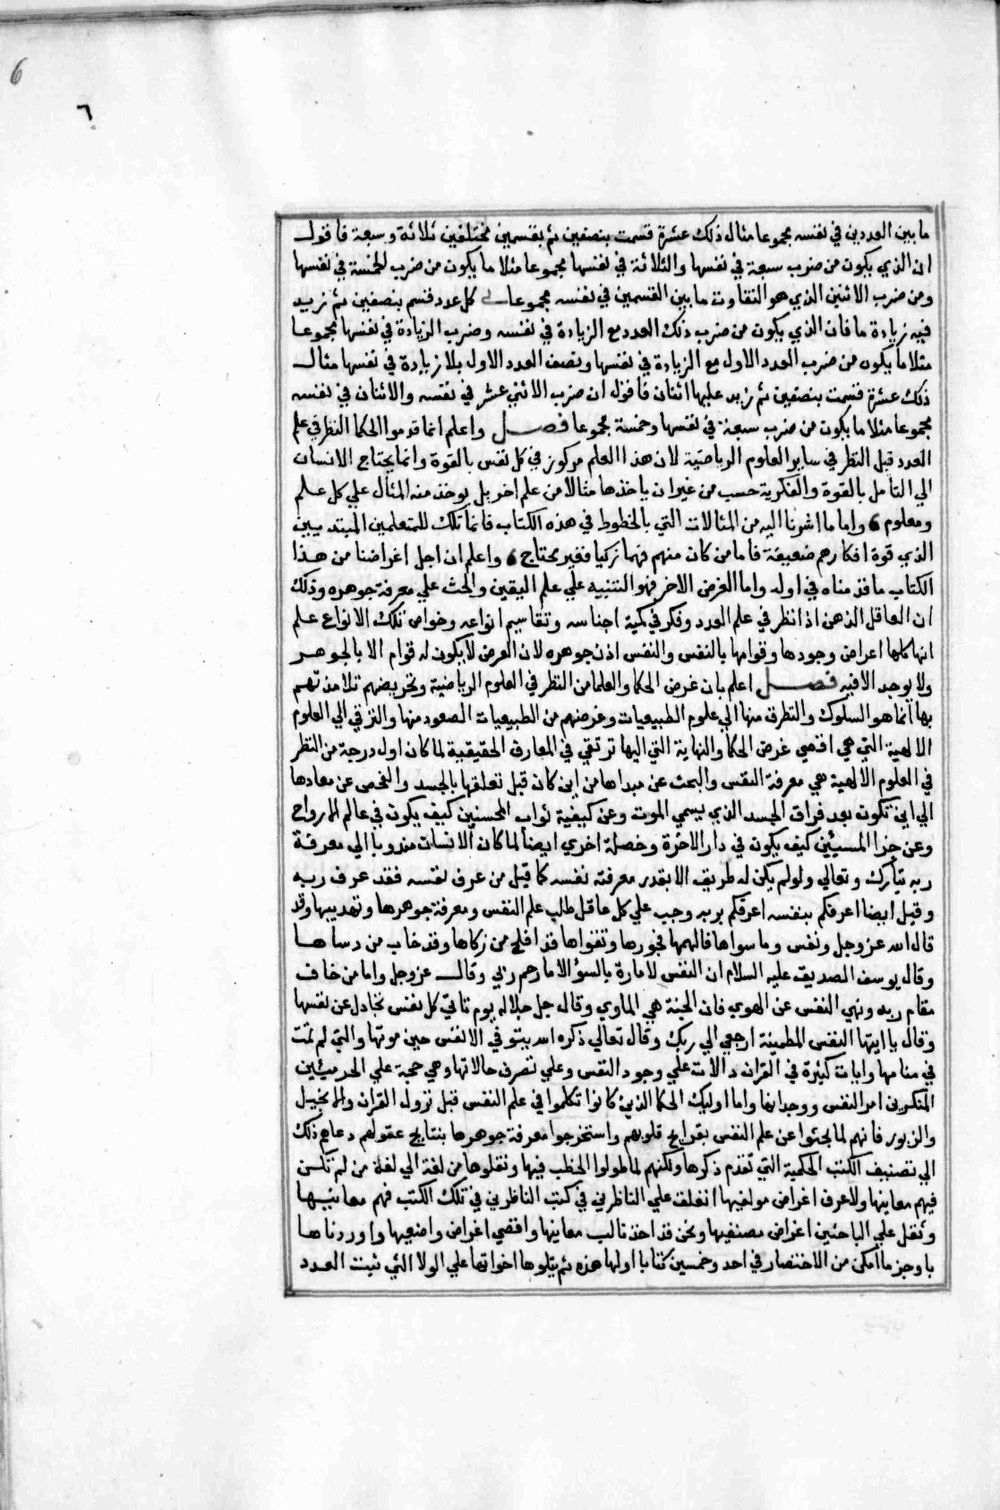 6
٦
ما بين العددين في نفسه مجموعا مثال ذلك عشرة قسمت بنصفين ثم بقسمين مختلفين ثلاثة وسبعة فاقول
ان الذي يكون من ضرب سبعة في نفسها والثلاثة في نفسها مجموعا مثلا ما يكون من ضرب الخمسة في نفسها
ومن ضرب الاثنين الذي هو التفاوت ما بين القسمين في نفسه مجموعا ي كل عدد قسم بنصفين ثم زيد
فيه زيادة ما فان الذي يكون من ضرب ذلك العدد مع الزيادة في نفسه وضرب الزيادة في نفسها مجموعا
مثلا ما يكون من ضرب العدد الاول مع الزيادة في نفسها ونصف العدد الاول بلا زيادة في نفسها مثال
ذلك عشرة قسمت بنصفين ثم زيد عليها اثنان فاقول ان ضرب الاثني عشر في نفسه والاثنان في نفسه
مجموعا مثلا ما يكون من ضرب سبعة في نفسها وخمسة مجموعا فصل واعلم انما قدموا الحكما النظر في علم
العدد قبل النظر في ساير العلوم الرياضية لان هذا العلم مركوز في كل نفس بالقوة وانما يحتاج الانسان
الي التامل بالقوة والفكرية حسب من غير ان ياخذ لها مثالا من علم اخر بل يوخذ منه المثال علي كل علم
ومعلوم واما ما اشرنا اليه من المثالات التي بالخطوط في هذه الكتاب فانما تلك للمتعلمين المبتديين
الذي قوة افكارهم ضعيفة فاما من كان منهم فهما زكيا فغير محتاج واعلم ان اجل اغراضنا من هذا
الكتاب ما قدمناه في اوله واما الغرض الاخر فهو التنبيه علي علم اليقين والحث علي معرفة جوهره وذلك
ان العاقل الذهن اذا نظر في علم العدد وفكر في كمية اجناسه وتقاسيم انواعه وخواص تلك الانواع علم
انها كلها اعراض وجودها وقوامها بالنفس والنفس اذن جوهره لان العرض لا يكون له قوام الا بالجوهر
ولا يوجد الا فيه فصل اعلم بان غرض الحكما والعلما من النظر في العلوم الرياضية وتخريضهم تلامذتهم
بها انما هو السلوك والتطرق منها الي علوم الطبيعيات وغرضهم من الطبيعيات الصعود منها والترقي الي العلوم
الالهية التي هي اقصي غرض الحكما والنهاية التي اليها ترتقي في المعارف الحقيقية لما كان اول درجة من النظر
في العلوم الالهية هي معرفة النفس والبحث عن مبداها من اين كان قبل تعلقها بالجسد والفحص عن معادها
الي اين تكون بعد فراق الجسد الذي يسمي الموت وعن كيفية ثواب المحسنين كيف يكون في عالم الارواح
وعن جزا المسيئين كيف يكون في دار الاخرة وخصلة اخري ايضا لما كان الانسان مندوبا الي معرفة
ربه تبارك وتعالي ولو لم يكن له طريق الا بقدر معرفته نفسه كما قيل من عرف نفسه فقد عرف ربه
وقيل ايضا اعرفكم بنفسه اعرفكم بربه وجب علي كل عاقل طلب علم النفس ومعرفة جوهرها وتهذيبها وقد
قال الله عز وجل ونفس وما سواها فالهمها فجورها وتقواها قد افلح من زكاها وقد خاب من دساها
وقال يوسف الصديق عليه السلام ان النفس لامارة بالسوء الا ما رحم ربي وقال عز وجل واما من خاف
مقام ربه ونهي النفس عن الهوي فان الجنة هي الماوي وقال جل جلاله يوم تاتي كل نفس تجادل عن نفسها
وقال يا ايتها النفس المطمينة ارجعي الي ربك وقال تعالي ذكره الله يتوفي الانفس حين موتها والتي لم تمت
في منامها وايات كثيرة في القران دالات علي وجود النفس وعلي تصرف حالاتها وهي حجة علي الحرميثين
المنكرين امر النفس ووجدانها واما اوليك الحكما الذين كانوا تكلموا في علم النفس قبل نزول القران والانجيل
والزبور فانهم لما بحثوا عن علم النفس بقرايح قلوبهم واستخرجوا معرفة جوهرها بنتايج عقولهم دعاهم ذلك
الي تصنيف الكتب الحكمية التي تقدم ذكرها ولكنهم لما طولوا الخطب فيها ونقلوها من لغة الي لغة من لم تكن
فيهم معاينها ولا عرف اغراض مولفيها انغلقت علي الناظرين في كتب الناظرين في تلك الكتب فهم معانيها
وثقل علي الباحثين اغراض مصنفيها ونحن قد اخذنا لب معاينها واقصي اغراض واضعيها واوردناها
باوجز ما امكن من الاختصار في احد وخمسين كتابا اولها هذه ثم يتلوها اخواتها علي الولا التي ثبت العدد